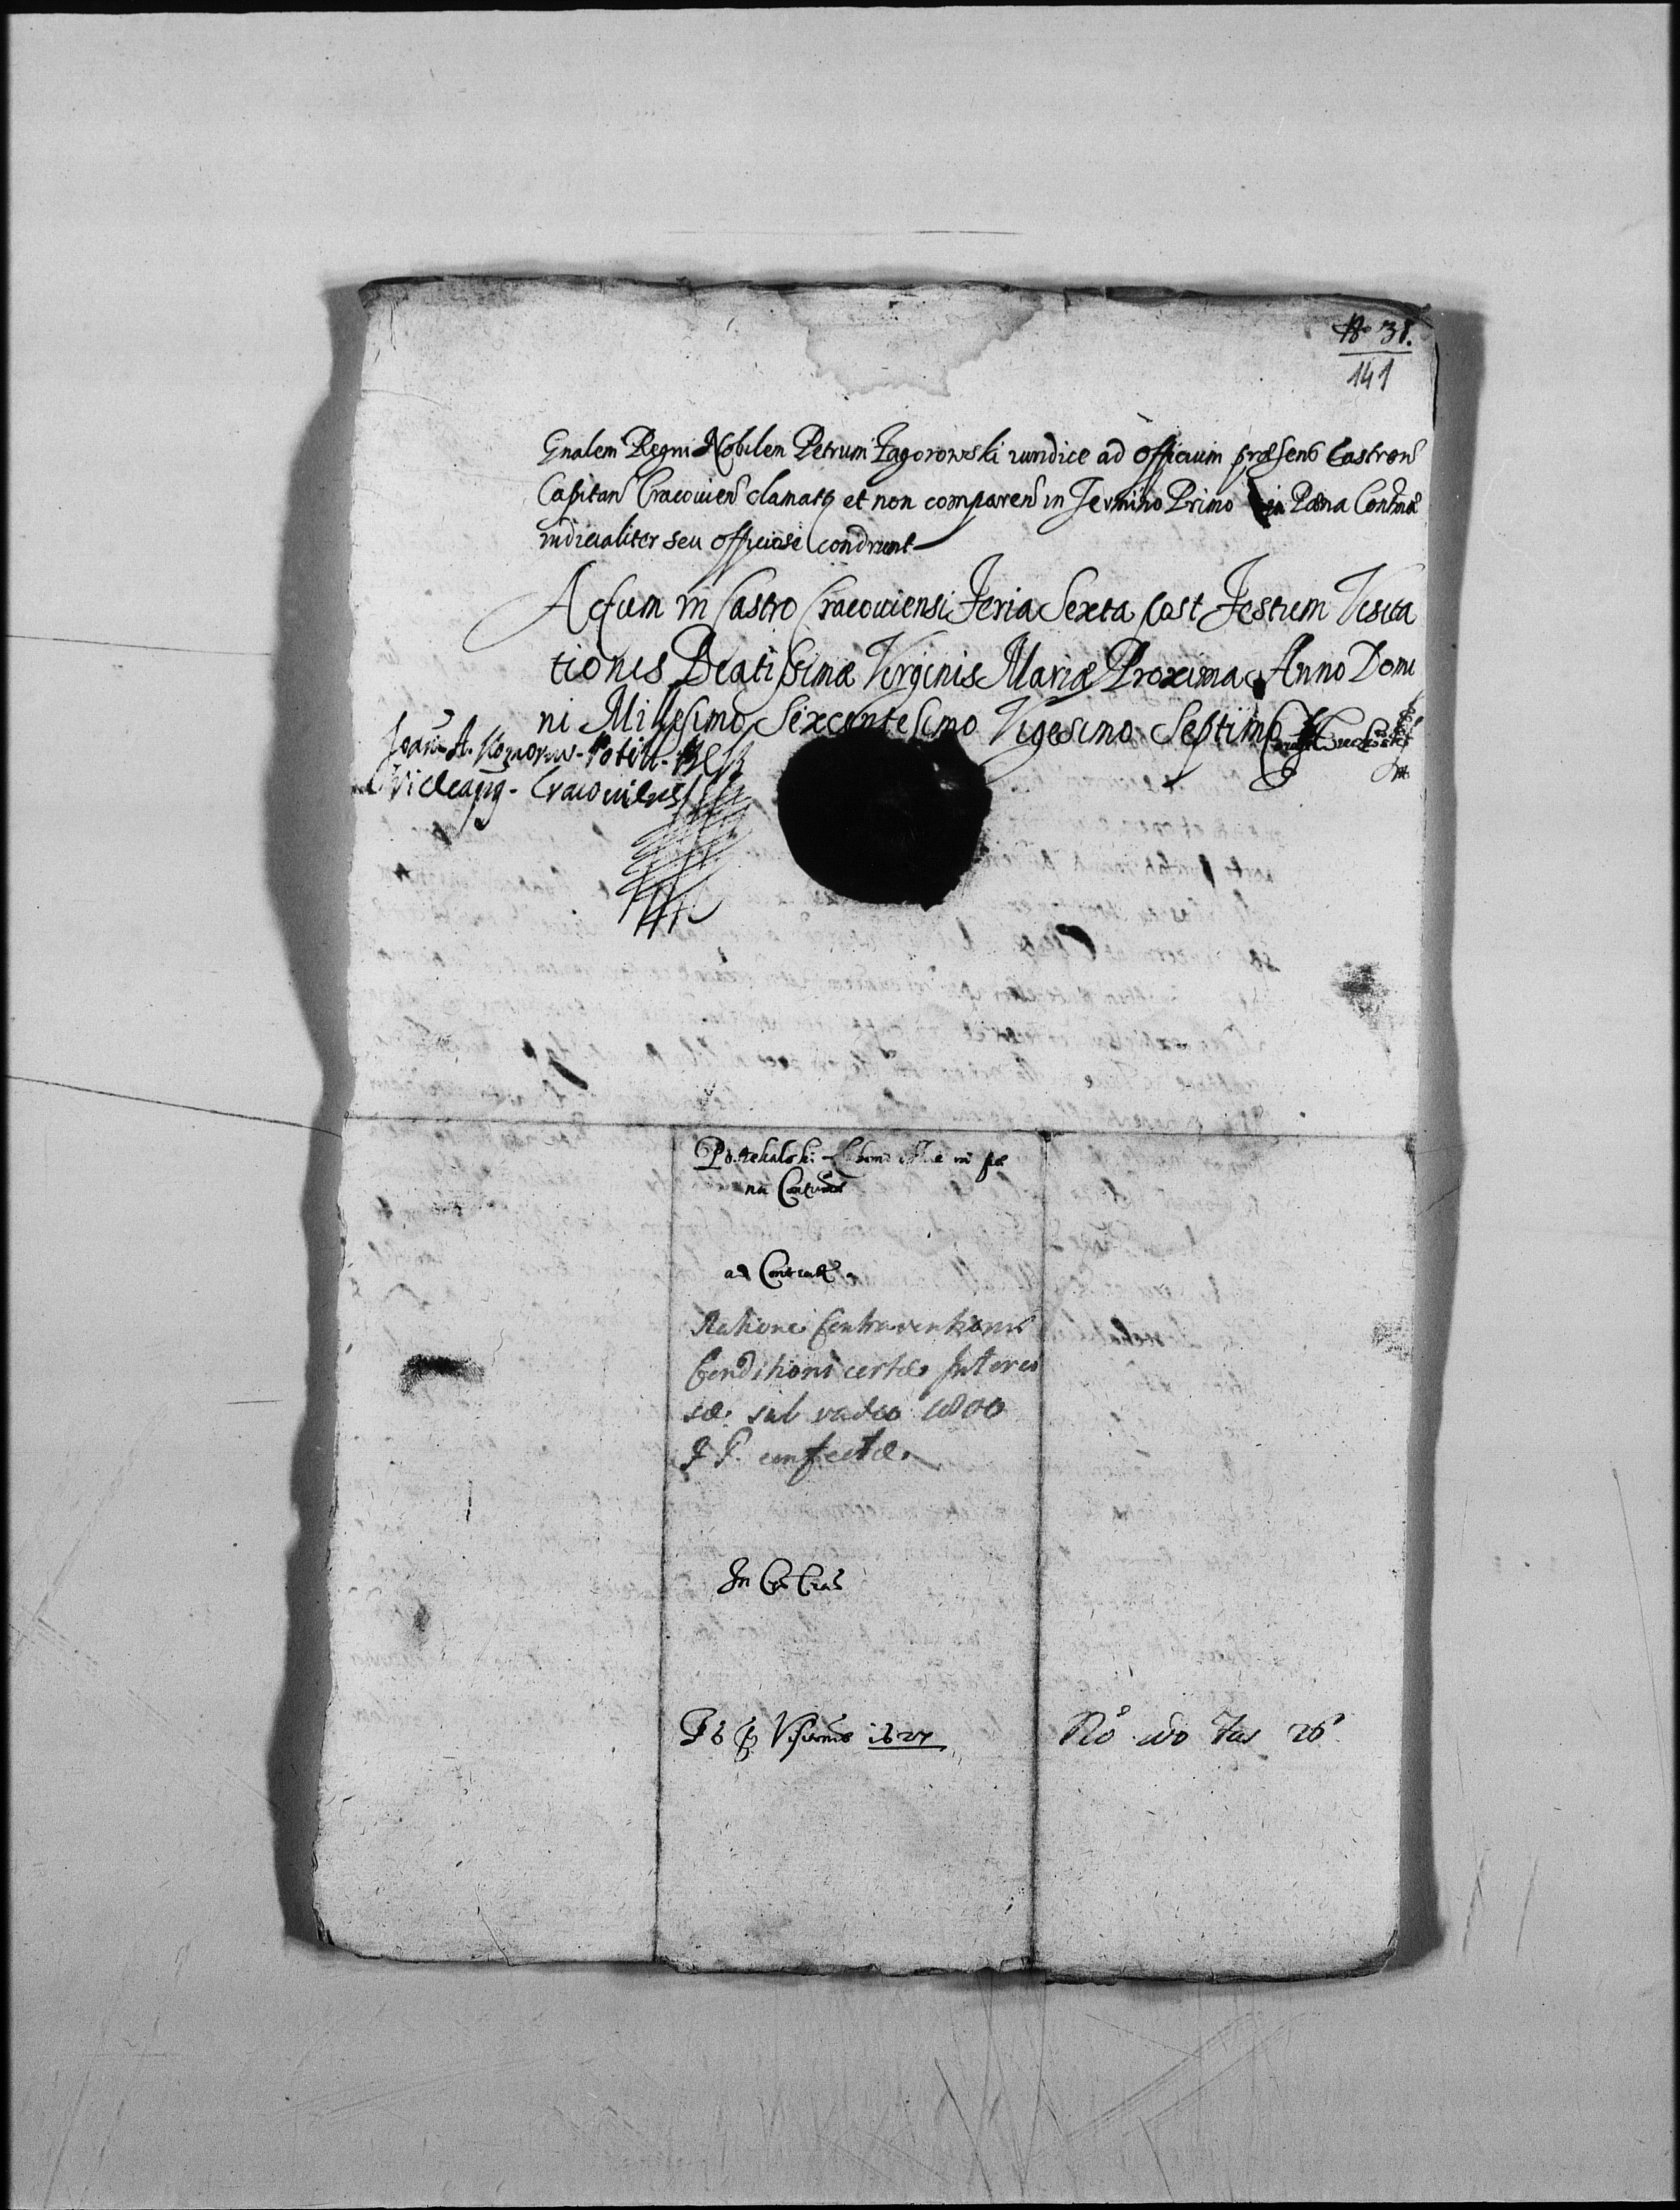 No 38.
141
Gnalem Regni Nobilem Petrum Zagorowski iuridice ad Officium præsens Castren
Capitan Cracovien clamatq et non comparen in Termino Primo in Pæna Contum
iudicialiter seu officiose condnunt
Actum in Castro Cracoviensi Feria Sexta post Festum Visita
tionis Beatissimæ Virginis Mariæ Proxima Anno Domi
ni Millesimo Sixcentesimo Vigesimo Septimo
Joan A.
Vicecapq. Cracovien
in pæ
na Contum
ad
Ratione Contraventionis
Conditioni certæ Interes
sæ sub vadio 1800
confectæ
In Cas Crac
F 6 p Visitaonis 1627
No 26